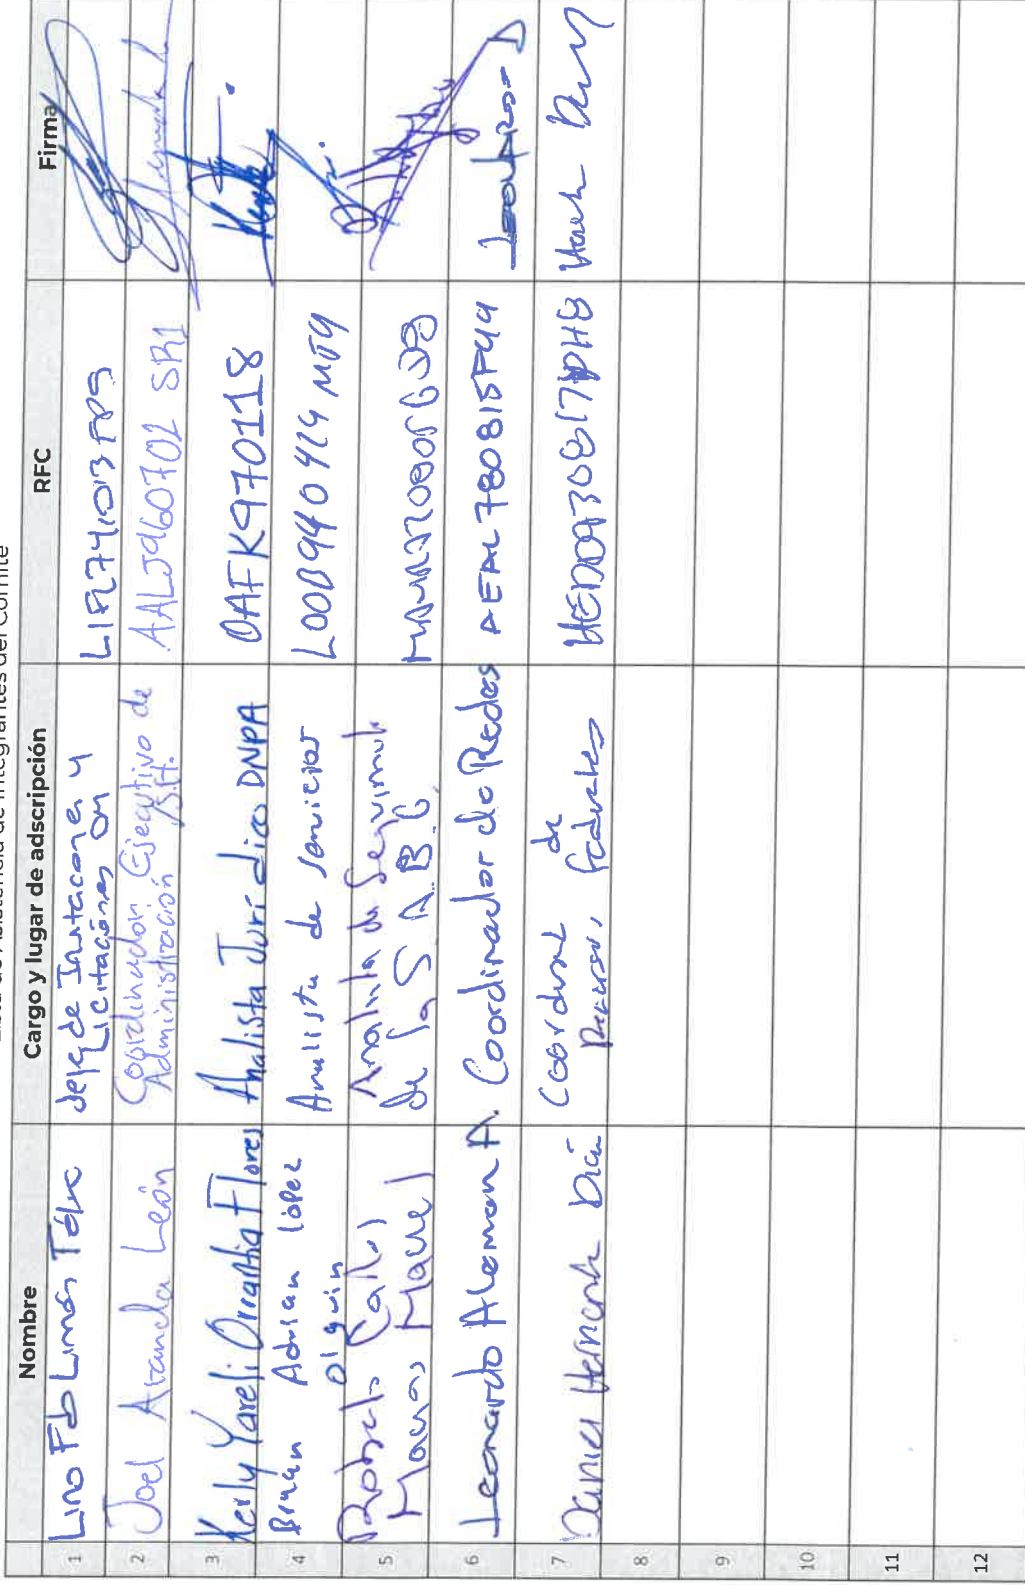 Lista de Asistencia de Integrantes del Comité
Nombre Cargo y lugar de adscripción RFC Firma
1 Lino Fb Limón Téllez Jefe de Invitaciones y
Licitaciones OM
2 Joel Aranda León Coordinador Ejecutivo de
Administración /S.H. AALJ960702 SR1
3 Kerly Yareli Orrantia Flores Analista Jurídico DNPA OAFK970118
4 Brayan Adrian lópez
Olguin Analista de servicios LOOB940424 MJ4
5 Roberto Carlos
Macias Manuel Analista de Seguimiento
de la S A B G
6 Leonardo Aleman A. Coordinador de Redes AEAL780815F44
7 Daniel Hernandez Diaz Coordinad de
Recursos Federales
8
9
10
11
12